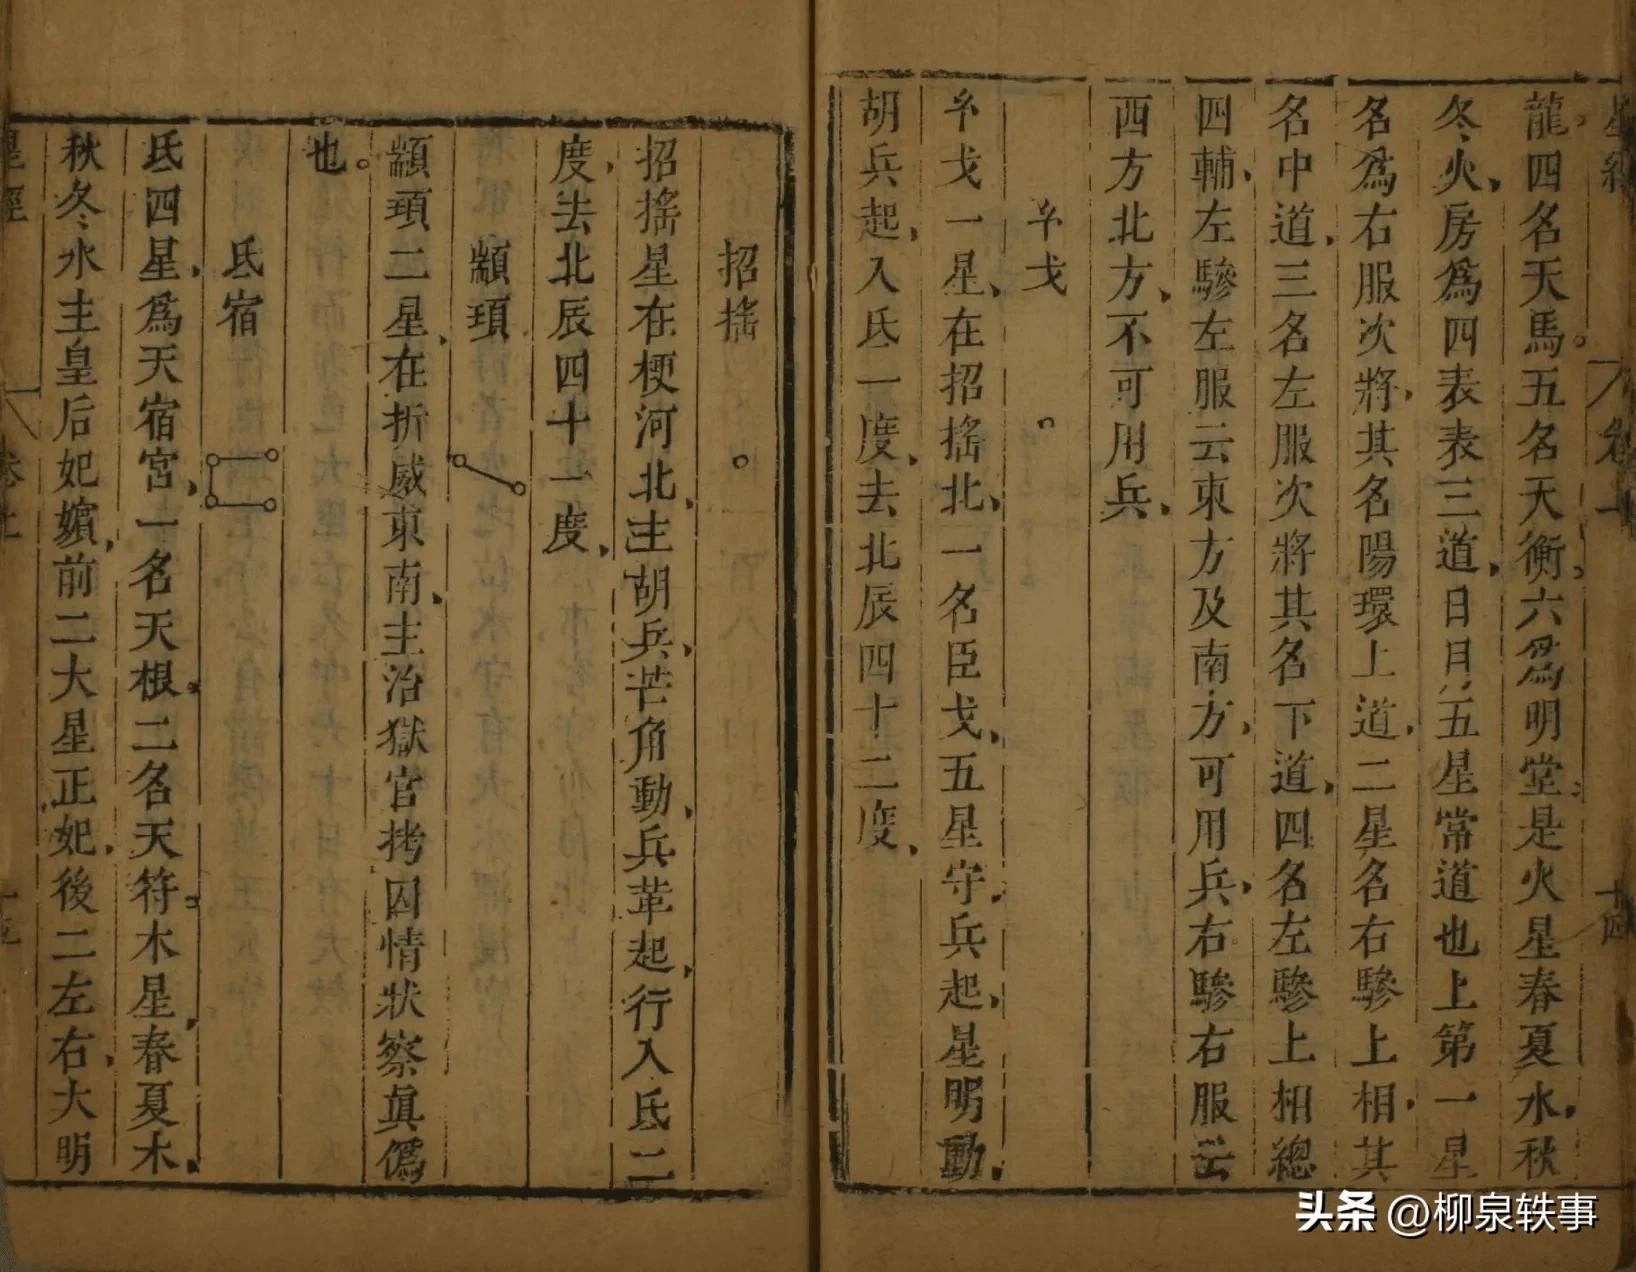 龍四名天馬五名天衡六爲明堂是火星春夏水秋
冬火房爲四表表三道日月五星常道也上第一星
名爲右服次將其名陽環上道二星名右驂上相其
名中道三名左服次將其名下道四名左驂上相總
四輔左驂左服云東方及南方可用兵右驂右服云
西方北方不可用兵
戈
戈一星在招搖北一名臣戈五星守兵起星明動
胡兵起入氐一度去北辰四十二度
招搖
招搖星在梗河北主胡兵芒角動兵革起行入氐二
度去北辰四十一度
顓頊
顓頊二星在折威東南主治獄官拷囚情狀察眞僞
也
氐宿
氐四星爲天宿宮一名天根二名天符木星春夏木
秋冬水主皇后妃嬪前二大星正妃後二左右大明
星經
卷上
十四
头条 @柳泉轶事